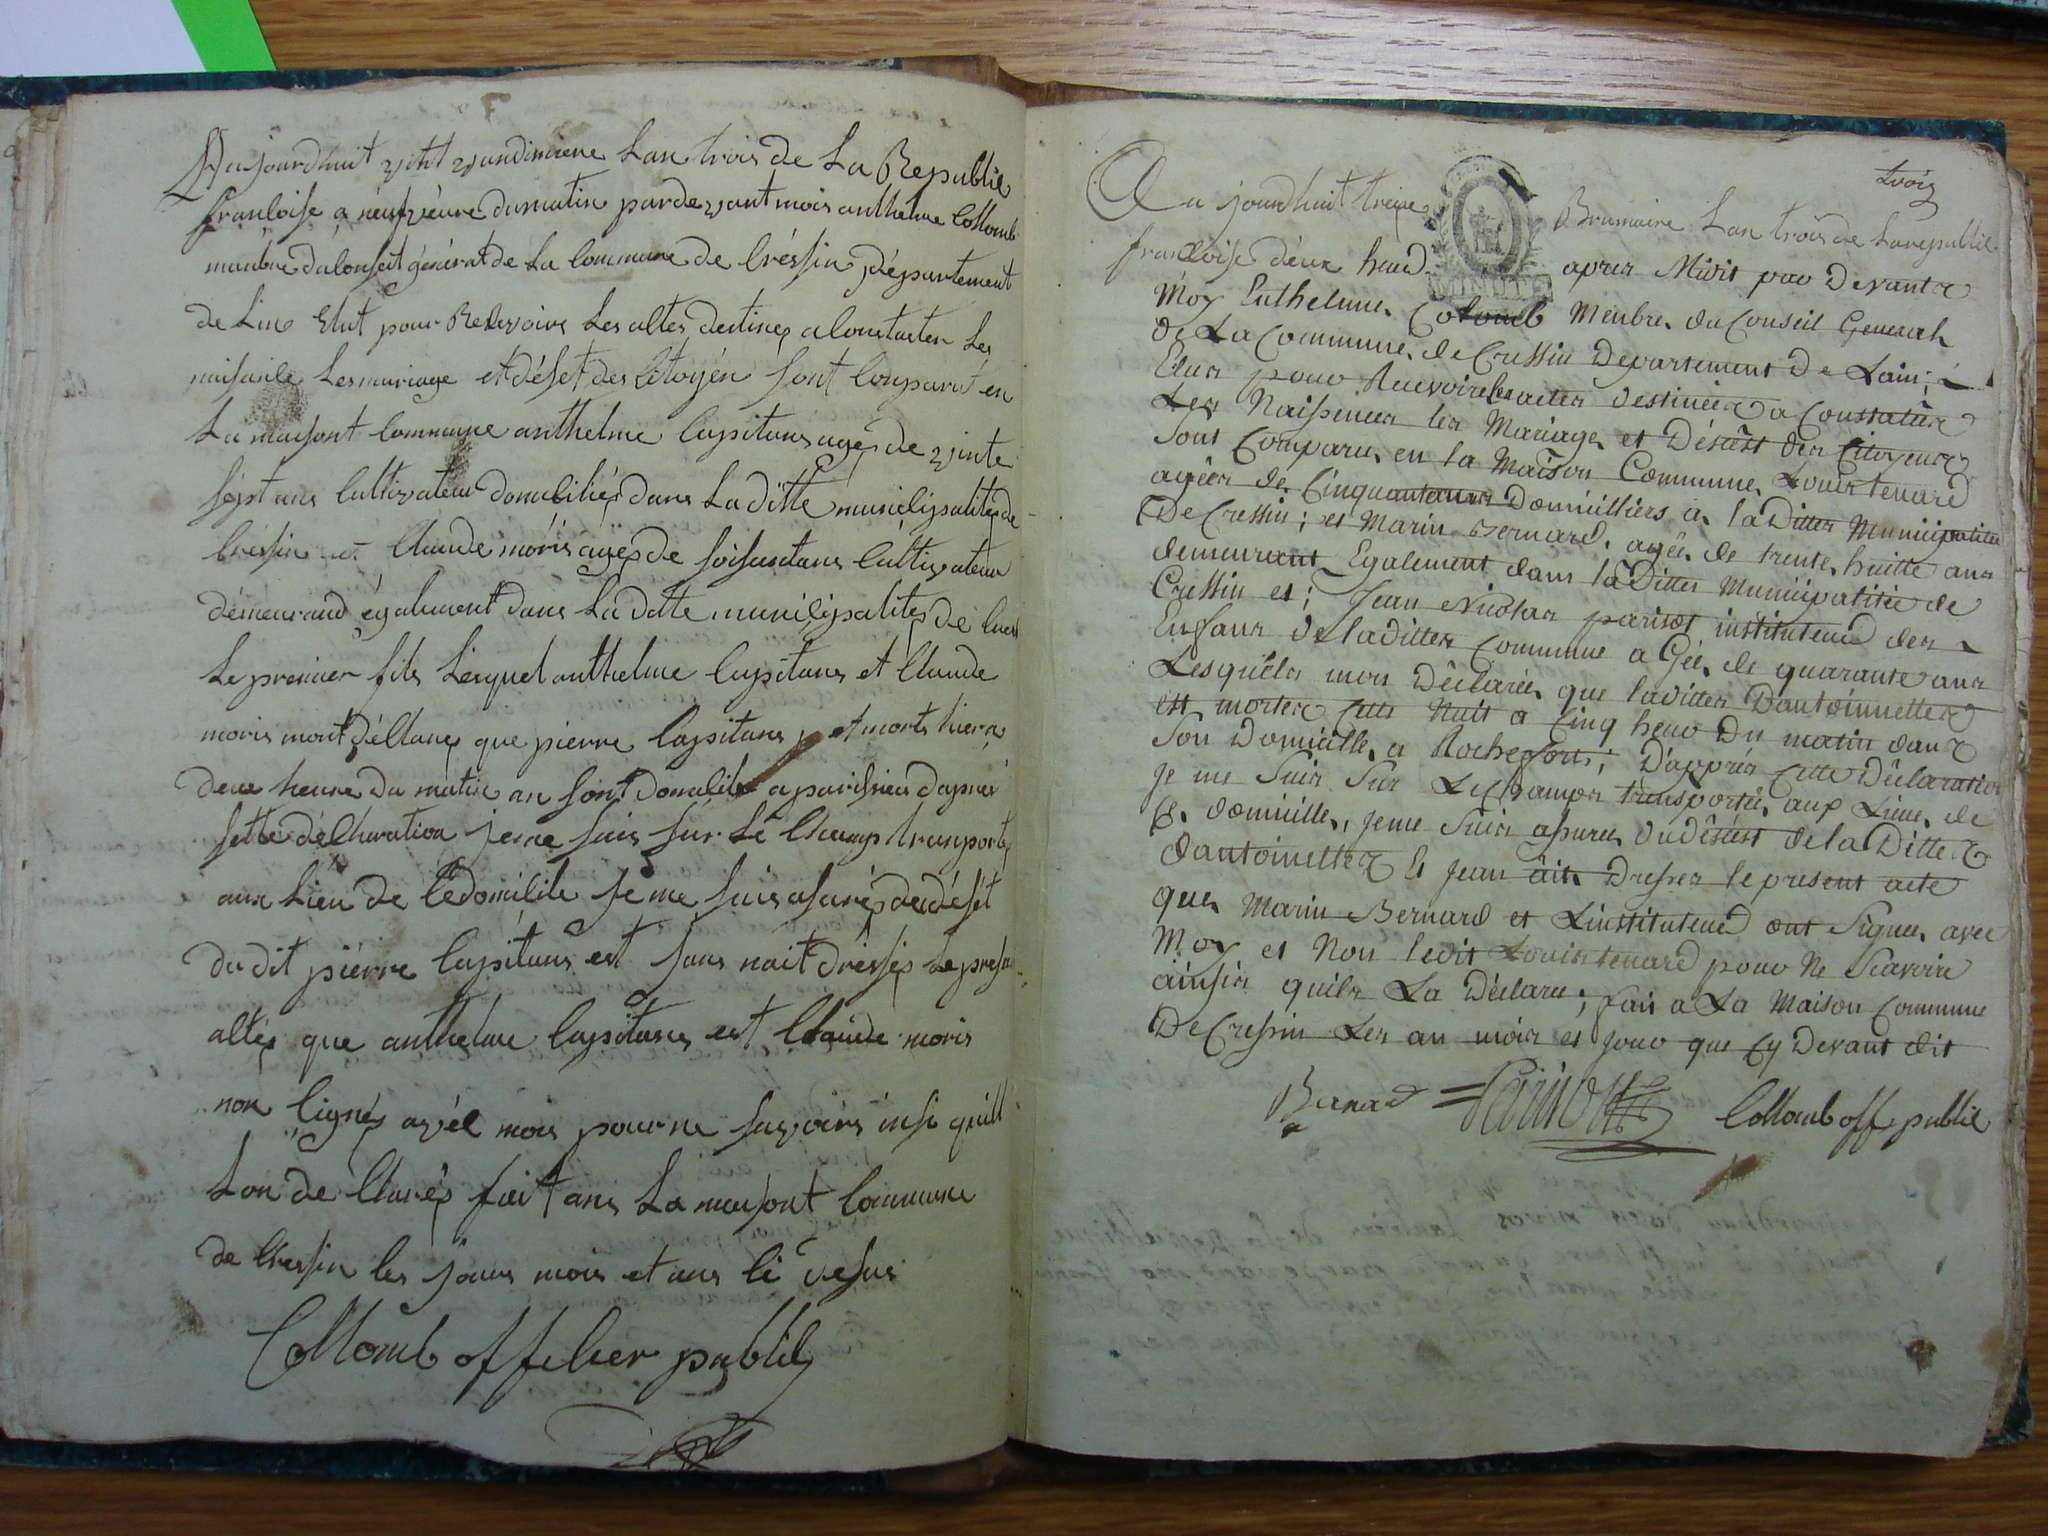 Aujourdhuit vint vandimiere Lan trois de La Republic
francoise a neufveure dumatin pardevant mois anthelme Collomb
manbre du Conseit général de La Commune de Créssin département
de Lin Elut pour Reservoire Les actes destines a Constater Les
naisance Lesmariage et déset des Citoyén sont Conparut en
La maisont Commune anthelme Capitans agé de vinte
sépt ans Cultivateur domiciliés dans La ditte municipalité de
Créssin et Claude moris agés de soisantans Cultivateur
démeurand égalument dans La ditte municipalités de
Le premier fils Lesquel anthelme Capitans et Claude
moris mont déclarés que pierre Capitans et morts hiera
deux heure du matin an sont domicile a parissieu dapres
sette déclaration je me suis sur Le Champ transporté
aux Lieu de Cedomicile je me suis asurés du dését
du dit piérre Capitans est jans nait dréssés Le presant
actés que anthelme Capitans est Claude moris
non signés avéc mois pour ne savoire insi quill
Lon déClarés fait ans La maisont Commune
de Cressin les jours mois et ans Ci desus
Collomb officier public
trois
Au jourdhuit treize Brumaire Lan trois de Larepublic
francoise deux heure apres Midit par Devant
MINUTE
Moy Enthelme Colomb Menbre du Conseil General
De La Commune de Cressin Departement De Lain
Elus pour Recevoire les actes destinées a Constatere
Les Naissences les Mariage et Décest des Citoyens
Sont Comparu en la Maison Commune Louis tenard
agées de Cinquantans Domicilliers a la Ditte Municipalitée
De Cressin; et Marin Bernard agée de trente huitte ans
demeurant Egalement dans la Ditte Municipalitée de
Cressin et; Jean Nicolas parisot instituteur des
Enfans de laditte Commune a Gée de quarante ans
Lesquels mon Déclarée que laditte Dantoinnette
est morte Cette Nuit a Cinq heur Du matin dans
Son Domicille a Rochefort; D'apprés Cette Déclaration
je me Suis Sur Le Champs transportée aux Lieu de
Ce domicille, je me Suis assurée du décest de la Ditte
dantoinette Et jean ait Dresser le present acte
que Marin Bernard et Linstituteur ont Signée avec
Moy et Non ledit Louis tenard pour Ne Scavoire
ainsis quils La Déclaré; fais a La Maison Commune
De Cressin Les an mois et jour que Cy Devant dit
Bernard Parisot Collomb off public